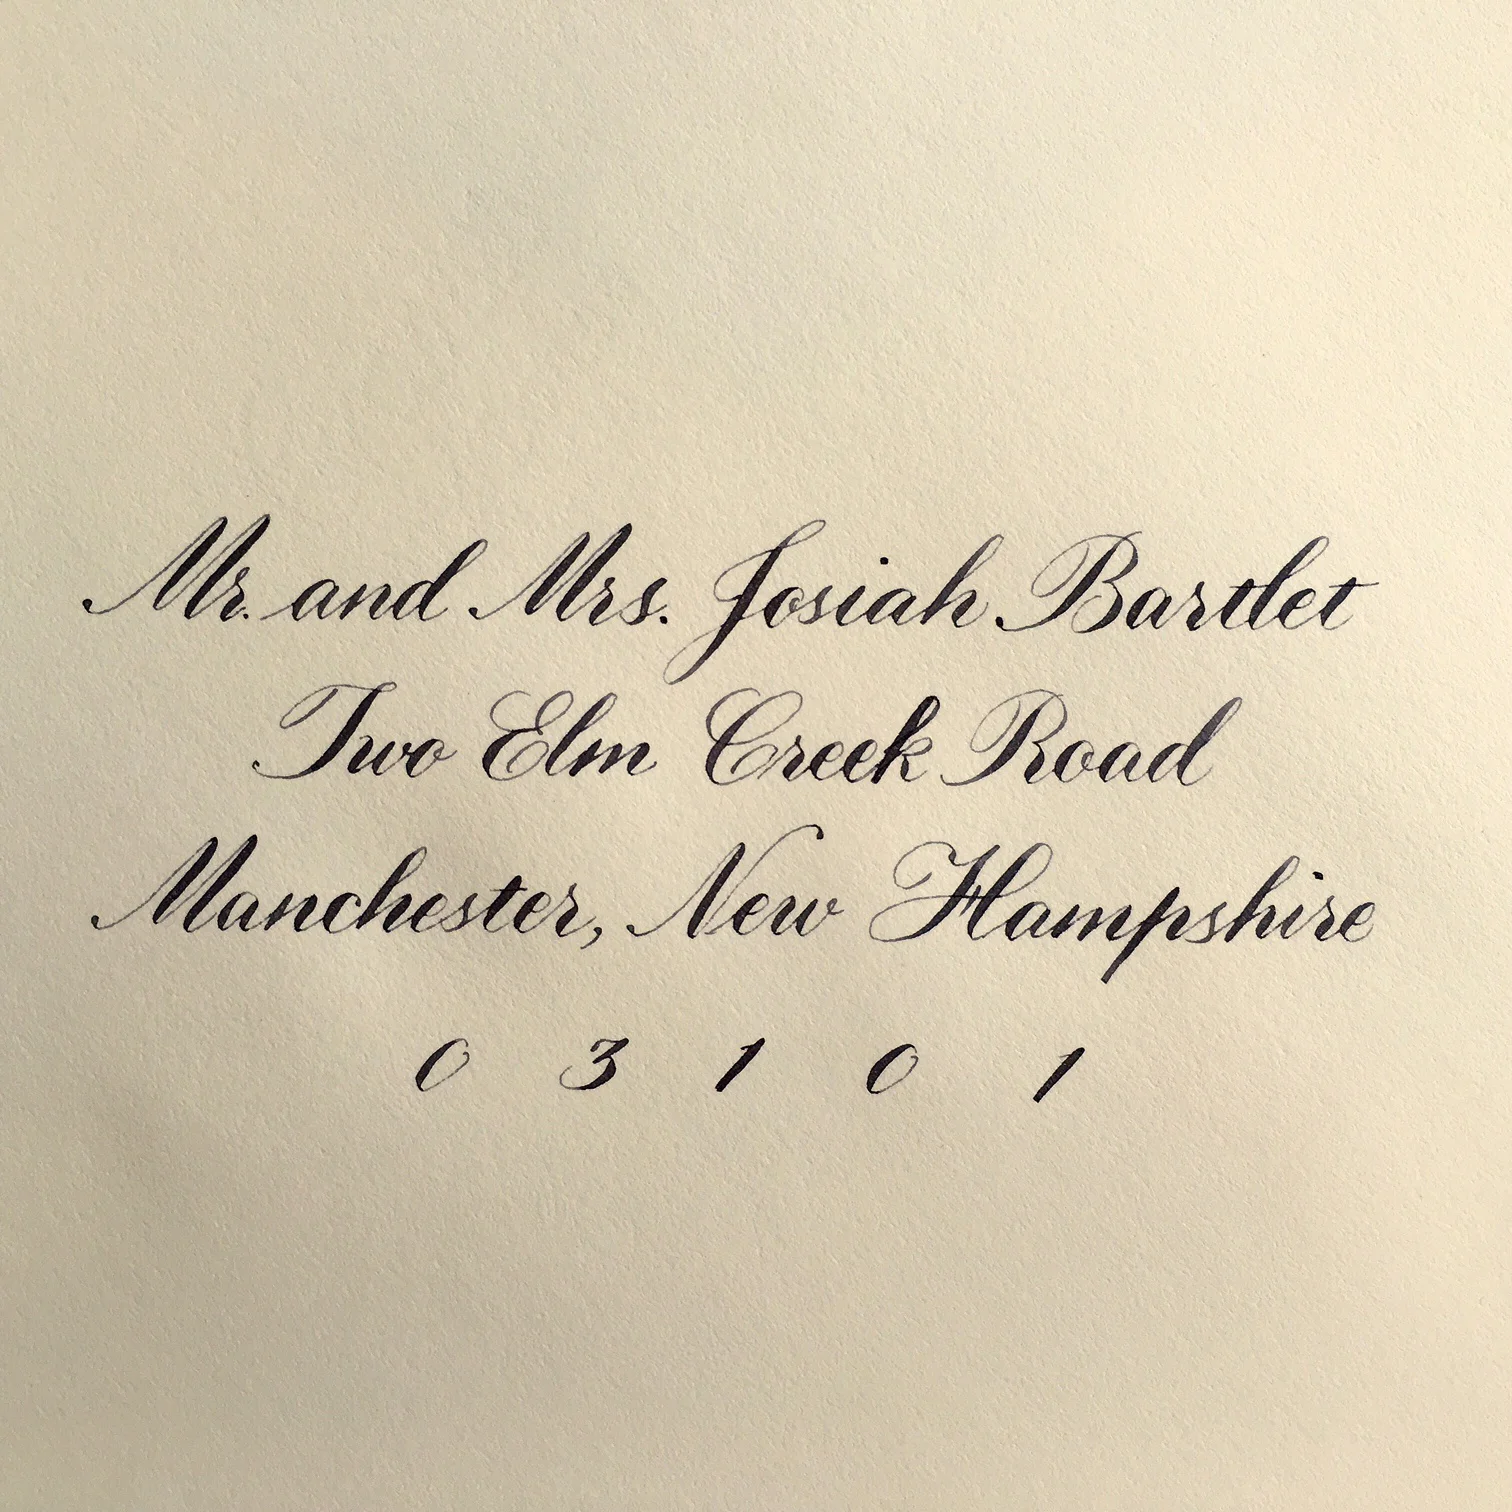 Mr. and Mrs. Josiah Bartlet
Two Elm Creek Road
Manchester, New Hampshire
0 3 1 0 1